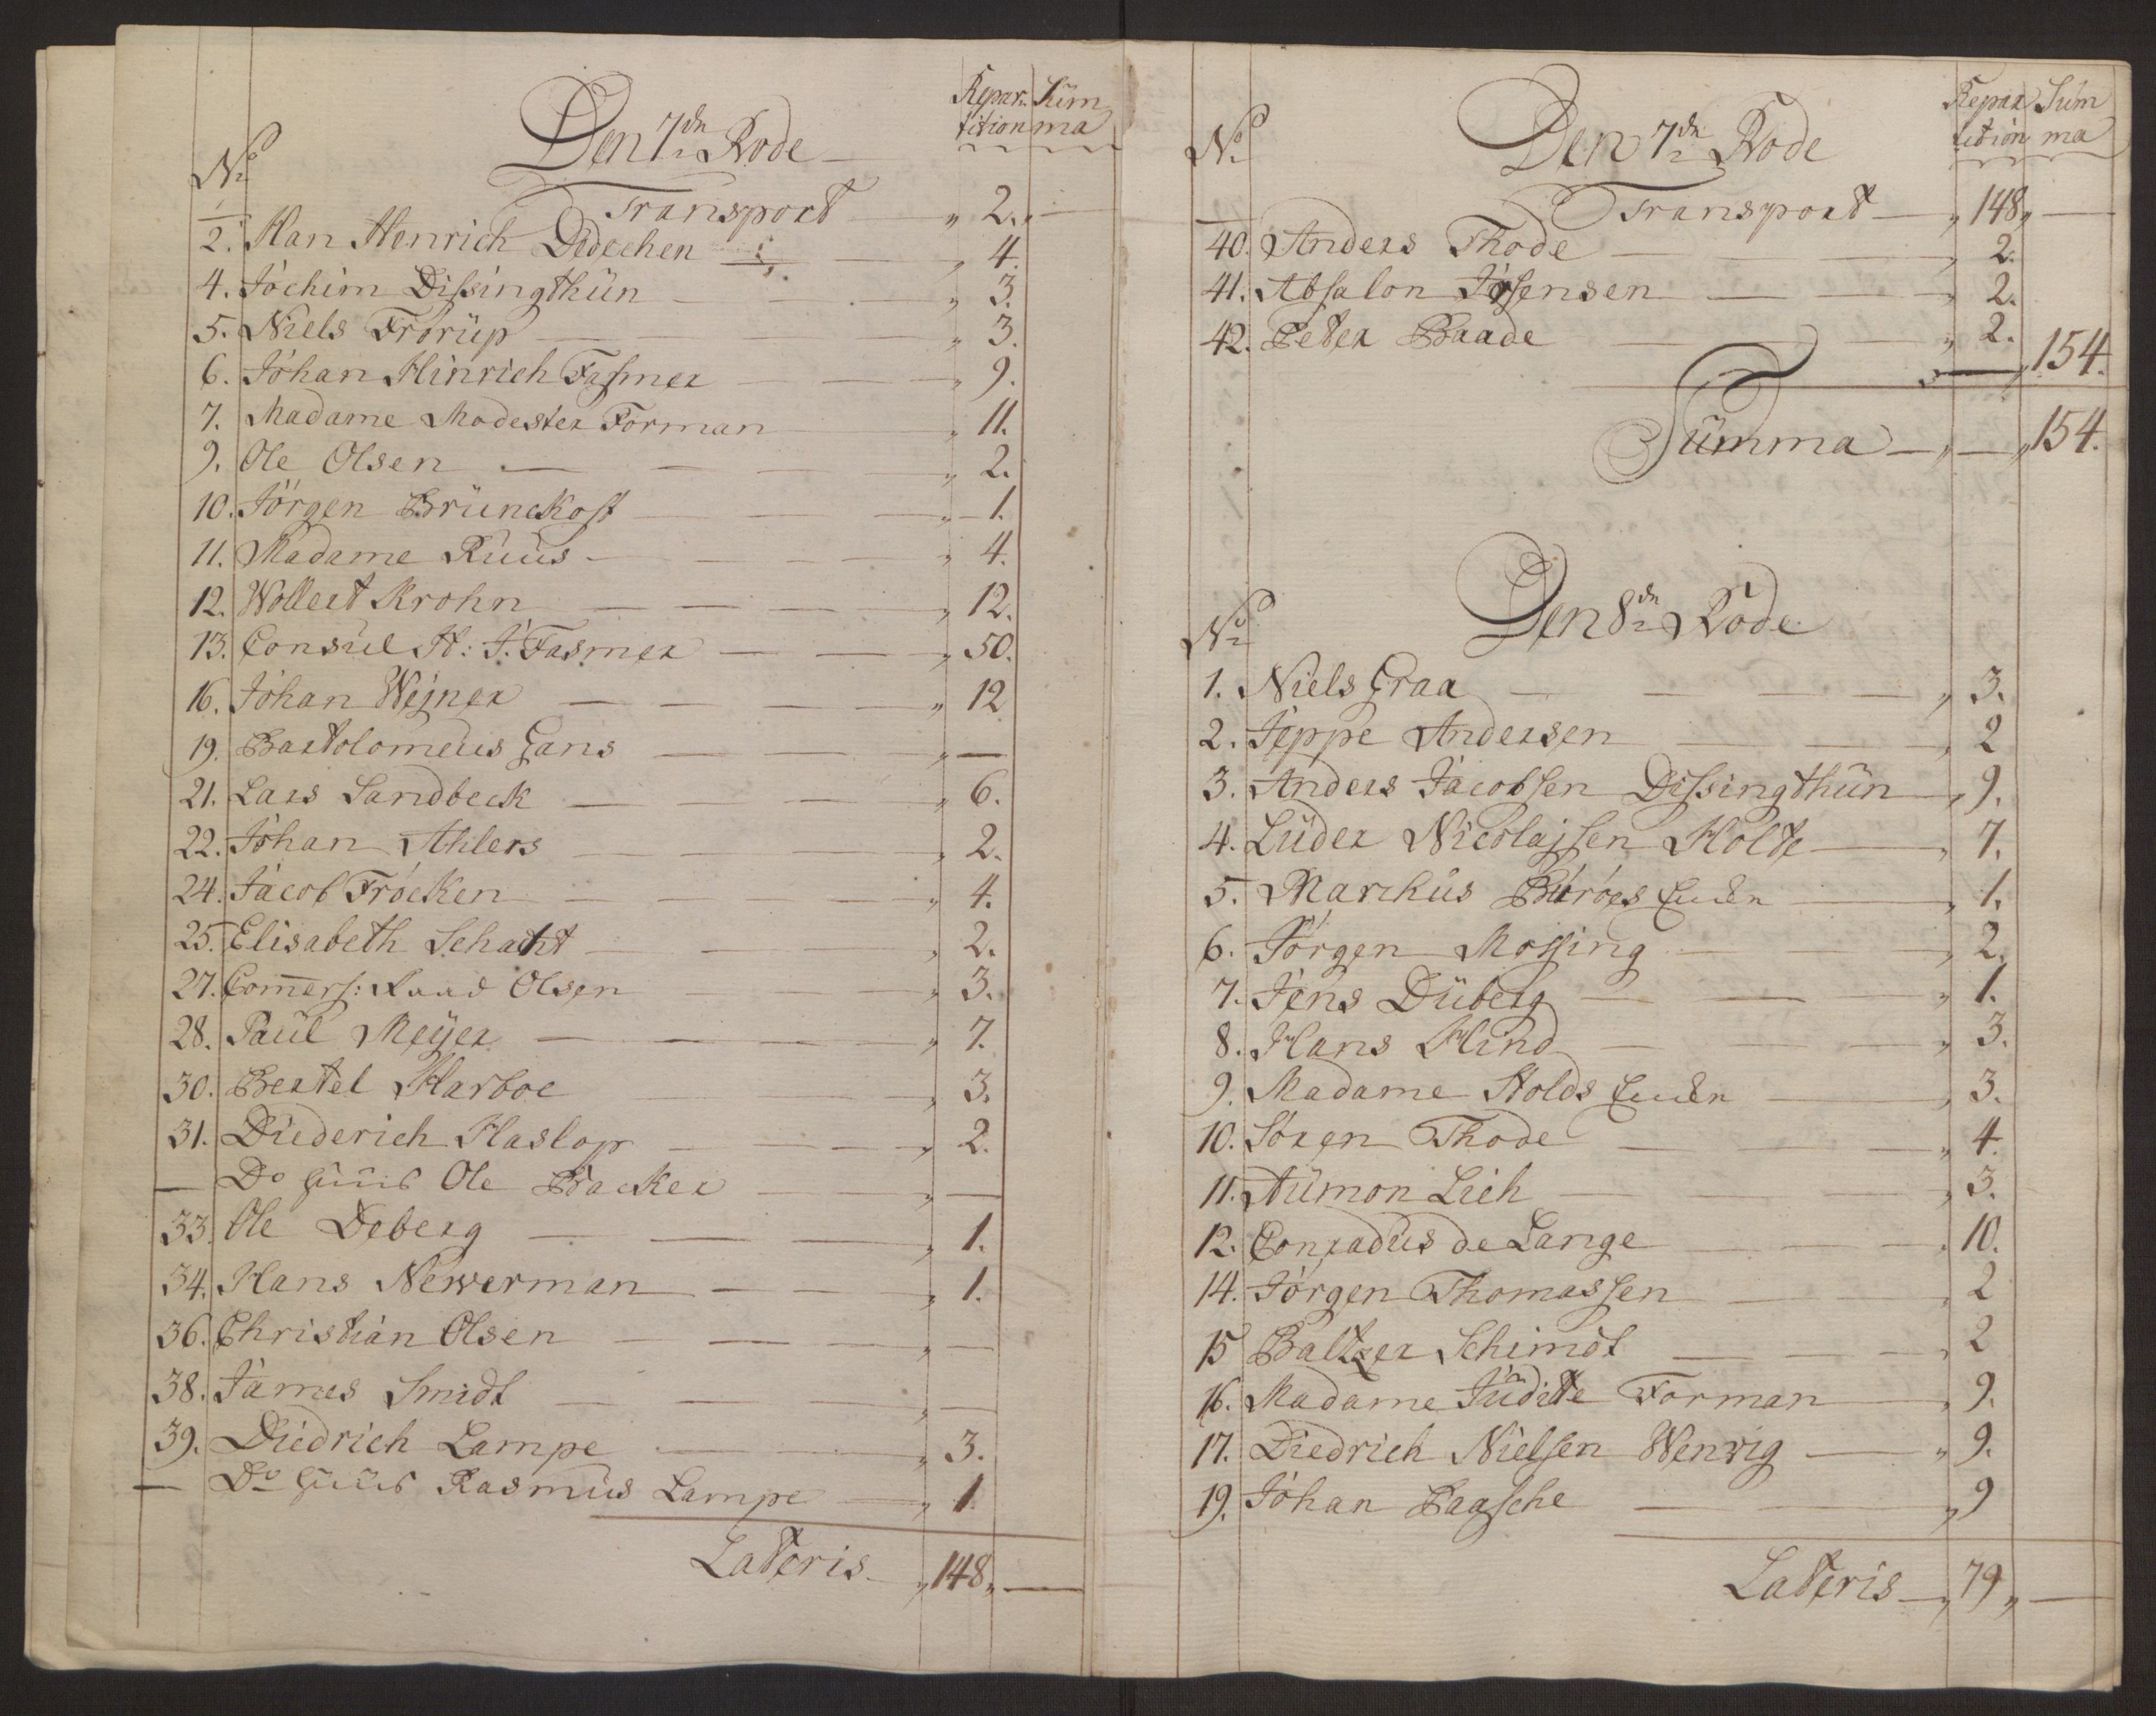 Repar- Sum
Den 7de Rode tition ma
No
Transport „ 2. „ —
2. Han Henrich Dedechen — „ 4.
4. Jochim Dissingthün — „ 3.
5. Niels Frorüp — „ 3.
6. Johan Hinrich Fasmer — „ 9.
7. Madame Modester Forman „ 11.
9. Ole Olsen — „ 2.
10. Jörgen Brünckost — „ 1.
11. Madame Ruus — „ 4.
12. Wollert Krohn — „ 12.
13. Consul H: J. Fasmer — „ 50.
16. Johan Wejner — „ 12
19. Bartolomeus Gans — „ —
21. Lars Sandbeck — „ 6.
22. Johan Ahlers — „ 2.
24. Jacob Fröcken — „ 4.
25. Elisabeth Schacht — „ 2.
27. Com̅ers: Raad Olsen — „ 3.
28. Paul Meÿer — „ 7.
30. Bertel Harboe — „ 3.
31. Diederich Haslop — „ 2.
— Do Huus Ole Backer — „ —
33. Ole Deberg — „ 1.
34. Hans Newerman — „ 1.
36. Christian Olsen — „ —
38. James Smidt — „ —
39. Diedrich Lampe — „ 3.
— Do Huus Rasmus Lampe — „ 1
Lateris — „ 148 „ —
Repar Sum
No Den 7de Rode tition ma
Transport — „ 148 „ —
40. Anders Thode — „ 2.
41. Absalon Jörsensen — „ 2.
42. Peter Baade — „ 2.
— „ 154.
Summa — „ — „ 154.
No Den 8de Rode
1. Niels Graa — „ 3.
2. Jeppe Andersen — „ 2
3. Anders Jacobsen Dissingthün — „ 9.
4. Lüder Nicolajsen Holte — „ 7.
5. Marckus Büröes Encke — „ 1.
6. Jörgen Mossing — „ 2.
7. Jens Düberg — „ 1.
8. Hans Hind — „ 3.
9. Madame Holds Encke — „ 3.
10. Sören Thode — „ 4.
11. Aümon Lich — „ 3.
12. Conradus de Lange — „ 10.
14. Jörgen Thomassen — „ 2
15 Baltzer Schimdt — „ 2
16. Madame Juditte Forman — „ 9.
17. Diedrich Nielsen Wenwig — „ 9.
19. Johan Baasche — „ 9
Lateris — „ 79 „ —